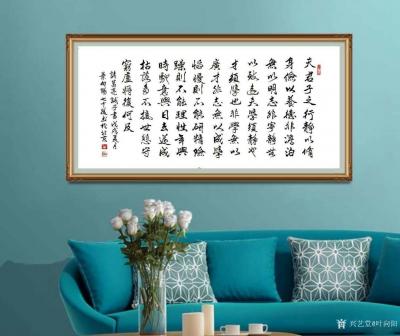 夫君子之行靜以脩
身儉以養德非淡泊
無以明志非寧靜無
以致遠夫學須靜也
才須學也非學無以
廣才非志無以成學
慆慢則不能研精險
躁則不能理性年與
時馳意與日去遂成
枯落多不接世悲守
窮廬將復何及
諸葛亮誡子書戊戌夏月
葉向陽書於北京
兴艺堂@叶向阳